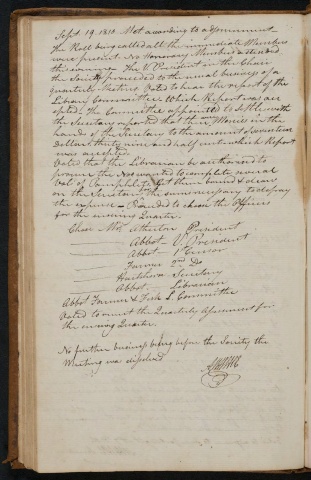 Sept. 19. 1810. Met according to adjournment
The Roll being called all the immediate Members
were present. No Honorary Members attended
this evening. The V. President in the Chair
the Society proceeded to the usual business of a
quarterly Meeting. Voted to hear the report of the
Library Committee. Which Report was ac
cepted. The Committee appointed to settle with
the Secretary reported that there Monies in the
hands of the Secretary to the amount of seventeen
Dollars thirty nine and half cents which Report
was accepted
Voted that the Librarian be authorised to
procure the Nos wanted to complete several
Vol. of Pamphlets, get them bound & draw
on the Secretary for the money necessary to defray
the expense — Proceeded to choose the Officers
for the ensuing Quarter.
Chose Mr. Atherton President
Abbot V. President
Abbot 1st Censor
Farmer 2nd Do
Hutchinson Secretary
Abbot Librarian
Abbot Farmer & Fisk L. Committee
Voted to omit the Quarterly Assessment for
the ensuing Quarter.
No further business being before the Society the
Meeting was dissolved